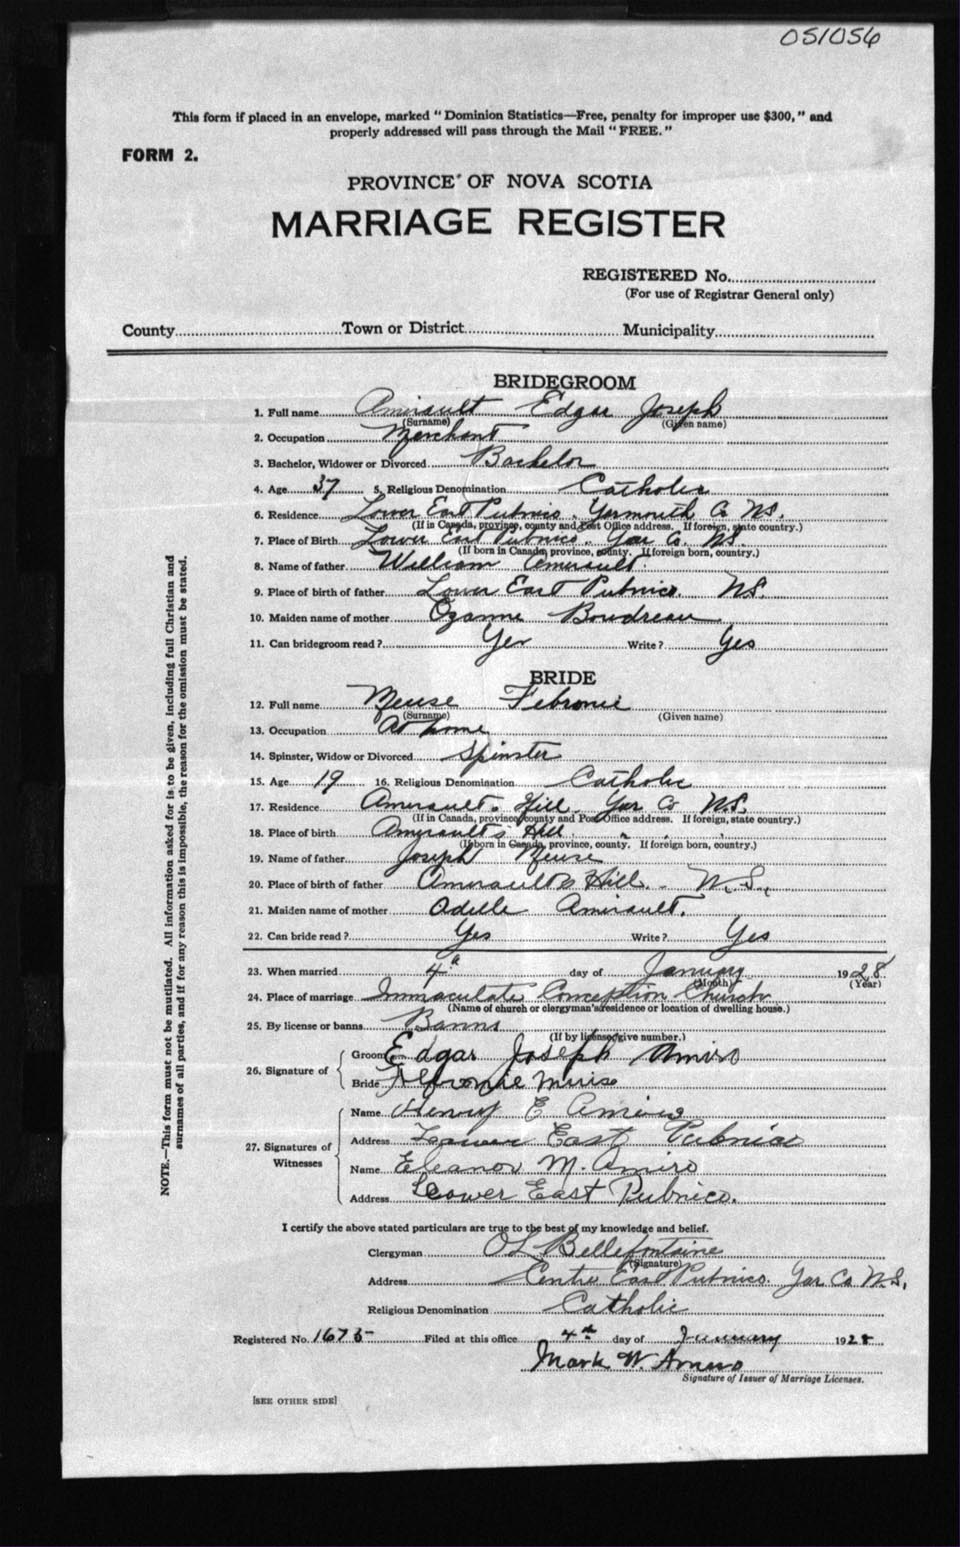 051056
This form if placed in an envelope, marked "Dominion Statistics—Free, penalty for improper use $300," and
properly addressed will pass through the Mail "FREE."
FORM 2.
PROVINCE OF NOVA SCOTIA
MARRIAGE REGISTER
REGISTERED No.
(For use of Registrar General only)
County Town or District Municipality
BRIDEGROOM
1. Full name Amirault Edgar Joseph
(Surname) (Given name)
2. Occupation Merchant
3. Bachelor, Widower or Divorced Bachelor
4. Age 37 5. Religious Denomination Catholic
6. Residence Lower East Pubnico. Yarmouth Co N.S.
(If in Canada, province, county and Post Office address. If foreign, state country.)
7. Place of Birth Lower East Pubnico. Yar Co. N.S.
(If born in Canada, province, county. If foreign born, country.)
8. Name of father William Amirault.
9. Place of birth of father Lower East Pubnico N.S.
10. Maiden name of mother Ozanne Boudreau
11. Can bridegroom read? Yes Write? Yes
BRIDE
12. Full name Meuse Febronie
(Surname) (Given name)
13. Occupation At home
14. Spinster, Widow or Divorced Spinster
15. Age 19 16. Religious Denomination Catholic
17. Residence Amirault's Hill Yar Co N.S.
(If in Canada, province, county and Post Office address. If foreign, state country.)
18. Place of birth Amirault's Hill " " "
(If born in Canada, province, county. If foreign born, country.)
19. Name of father Joseph Meuse
20. Place of birth of father Amirault's Hill. N.S.
21. Maiden name of mother Adelle Amirault.
22. Can bride read? Yes Write? Yes
23. When married 4th day of January 1928
(Month) (Year)
24. Place of marriage Immaculate Conception Church
(Name of church or clergyman's residence or location of dwelling house.)
25. By license or banns Banns
(If by license, give number.)
26. Signature of
Groom Edgar Joseph Amiro
Bride Febronie Muise
27. Signatures of Witnesses
Name Henry E Amiro
Address Lower East Pubnico
Name Eleanor M. Amiro
Address Lower East Pubnico.
I certify the above stated particulars are true to the best of my knowledge and belief.
Clergyman O L Bellefontaine
(Signature)
Address Centre East Pubnico Yar Co N.S.
Religious Denomination Catholic
Registered No. 1675 Filed at this office 4th day of January 1928
Mark W. Amiro
Signature of Issuer of Marriage Licenses.
[SEE OTHER SIDE]
NOTE.—This form must not be mutilated. All information asked for is to be given, including full Christian and
surnames of all parties, and if for any reason this is impossible, the reason for the omission must be stated.